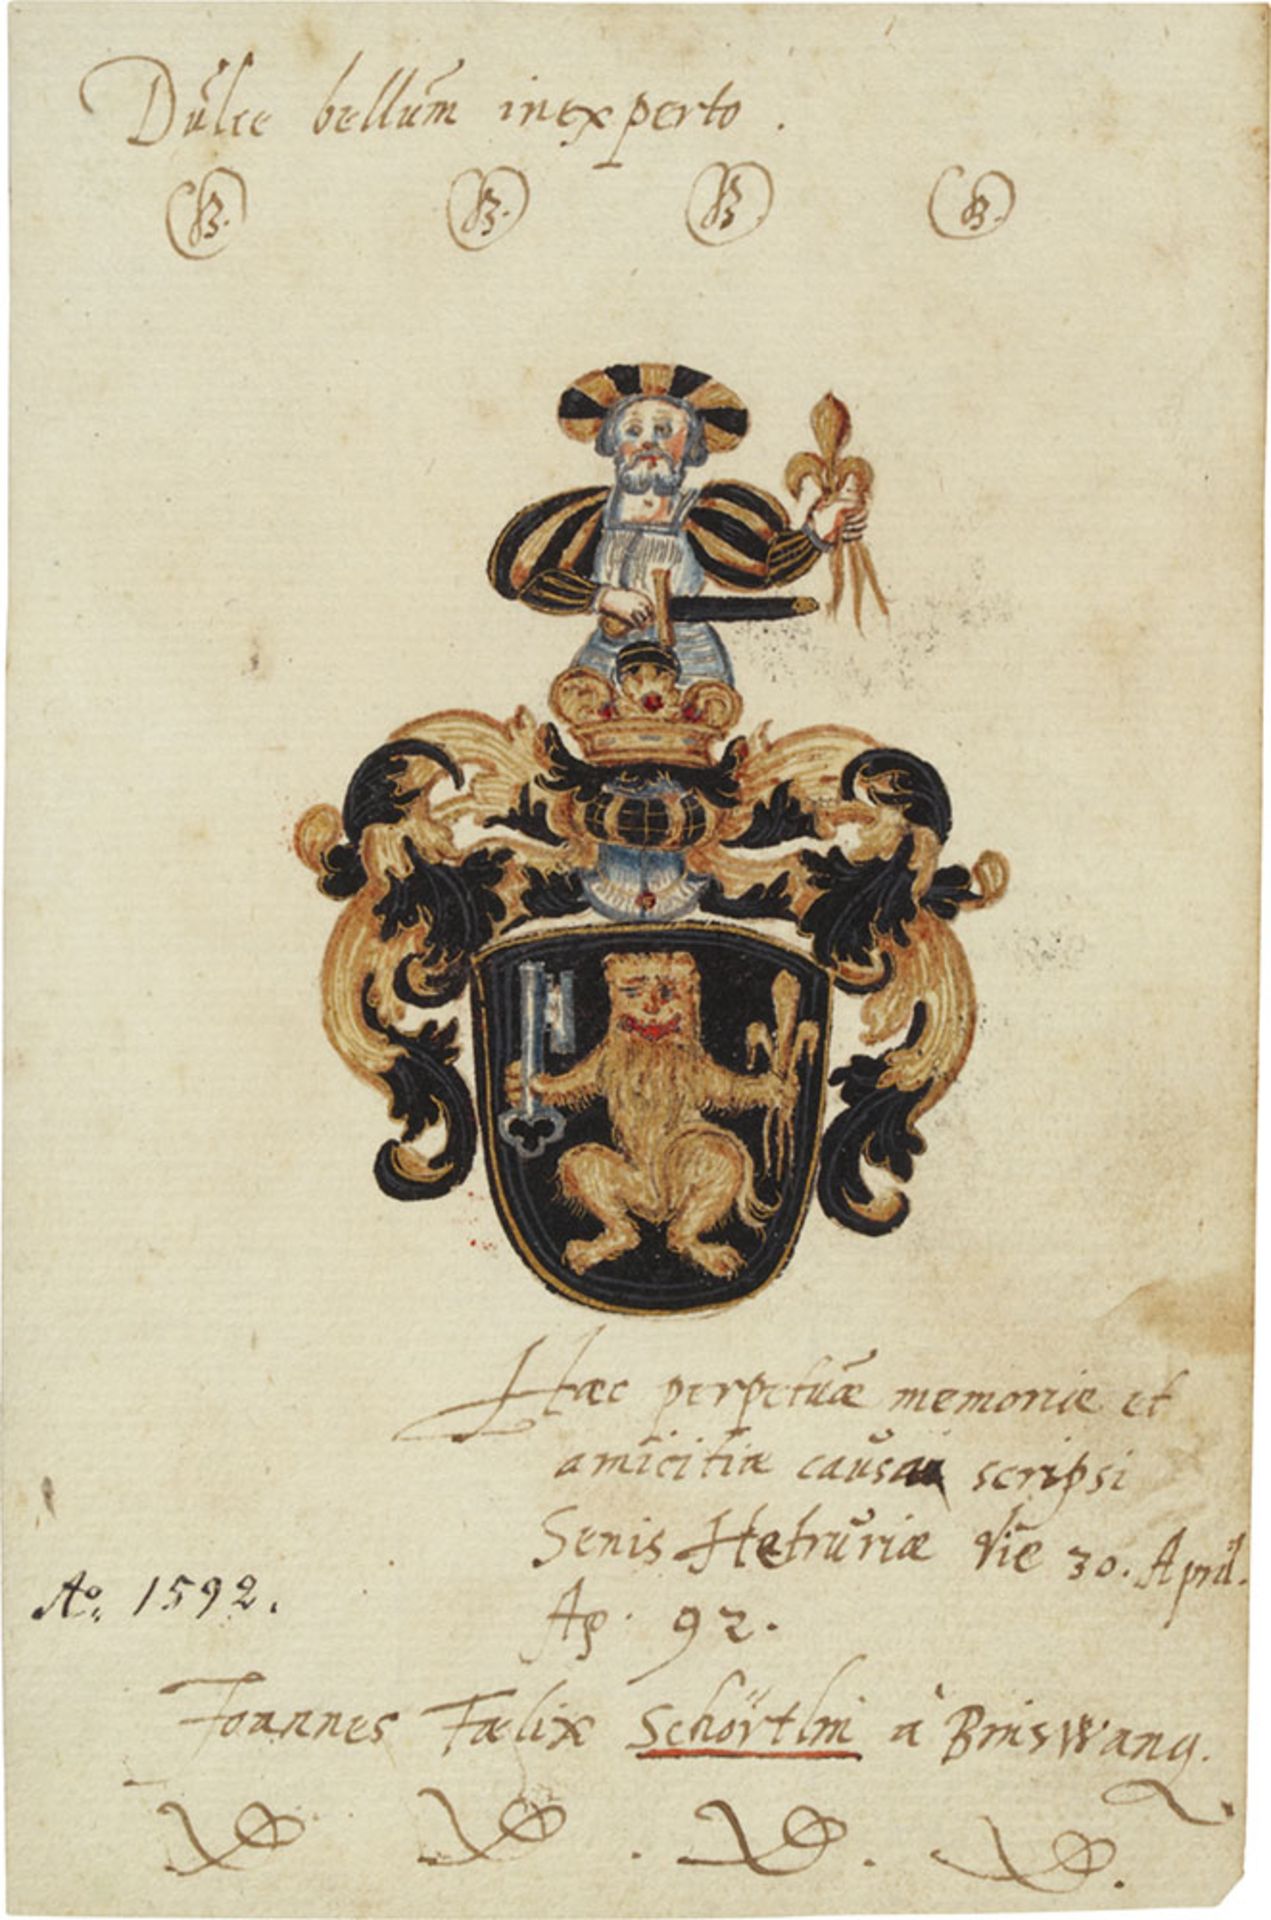 Dulce bellum inexperto.
Haec perpetuae memoriae et
amicitiae causa scripsi
Senis Hetruriae die 30. April.
Ao. 92.
Ao. 1592.
Joannes Faelix Schörtlin à Binswang.